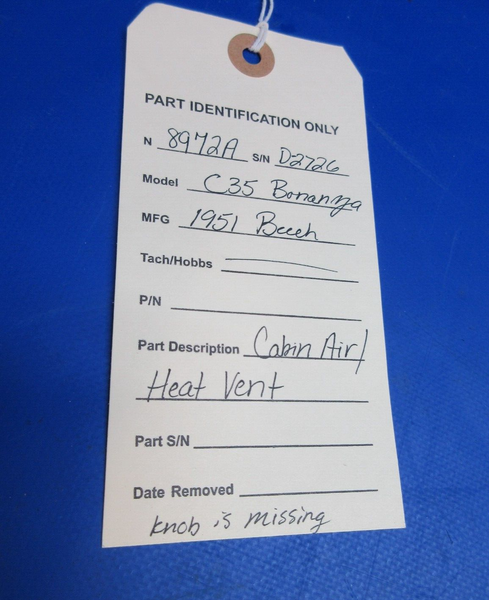 PART IDENTIFICATION ONLY
N 8972A S/N D2726
Model C35 Bonanza
MFG 1951 Beech
Tach/Hobbs
P/N
Part Description Cabin Air/
Heat Vent
Part S/N
Date Removed
knob is missing